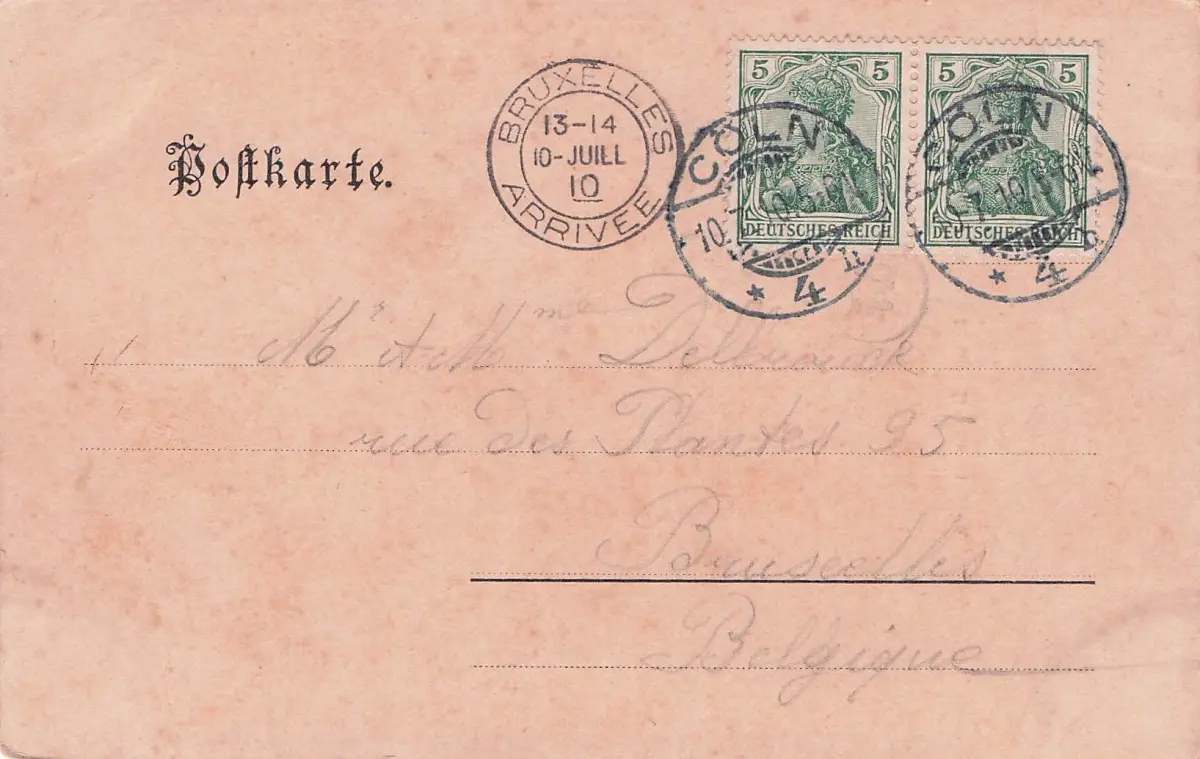 Postkarte.
BRUXELLES
13-14
10-JUILL
10
ARRIVEE
5 5
DEUTSCHES REICH
5 5
DEUTSCHES REICH
CÖLN
10.
* 4
CÖLN
7.10.
* 4
Mr & Mme
rue des Plantes 95
Bruxelles
Belgique